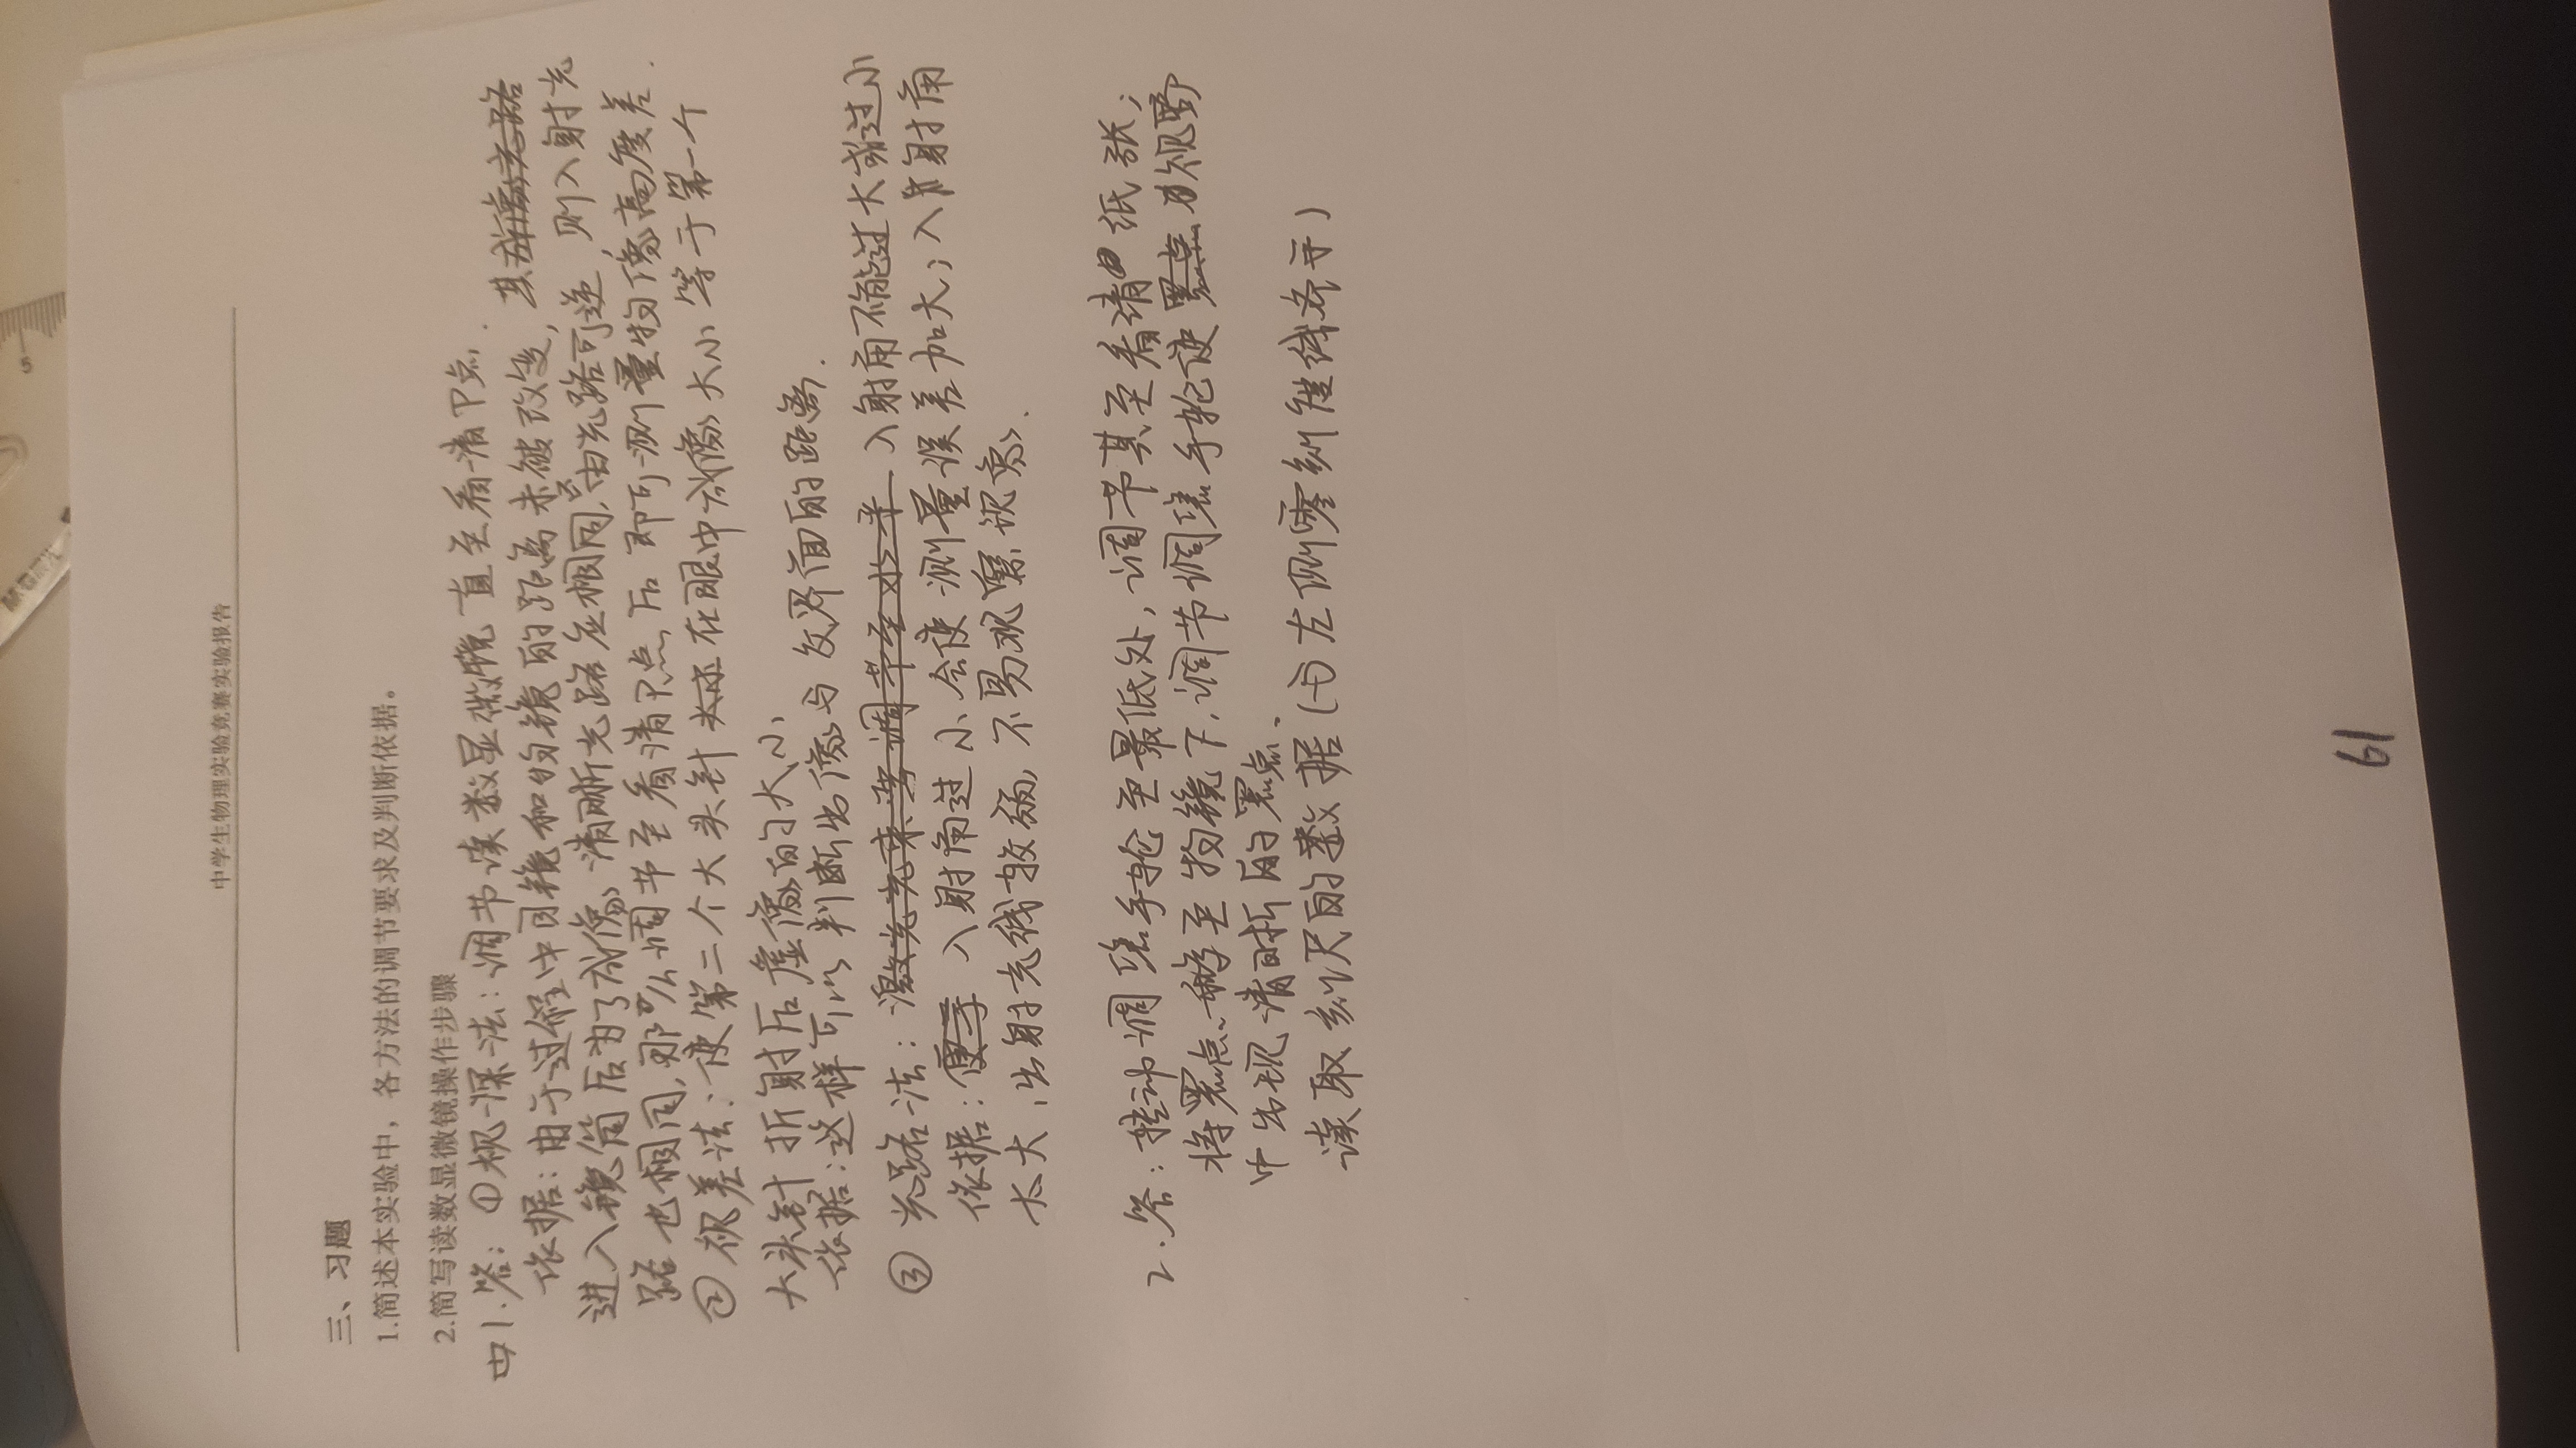 中学生物理实验竞赛实验报告
三、习题
1.简述本实验中，各方法的调节要求及判断依据。
2.简写读数显微镜操作步骤
1.答：①视深法：调节读数显微镜直至看清P点.
依据：由于过程中目镜和物镜的距离未被改变，其
进入镜筒后为了成像清晰光路应相同，由光路可逆，则入射光
路也相同，那么调节至看清P点后即可测量物像高度差.
②视差法：使第二个大头针在眼中成像大小等于第一个
大头针折射后虚像的大小，
依据：这样可以判断出像与界面的距离.
③光路法：入射角不能过大或过小
依据：入射角过小会使测量误差加大；入射角
太大，出射光线较弱，不易观察现象.
2.答：转动调焦手轮至最低处，调节其至看清纸张；
将黑点移至物镜下，调节调焦手轮使视野
中出现清晰的黑点.
读取刻度尺的数据（与左侧零刻准线齐平）
19
5